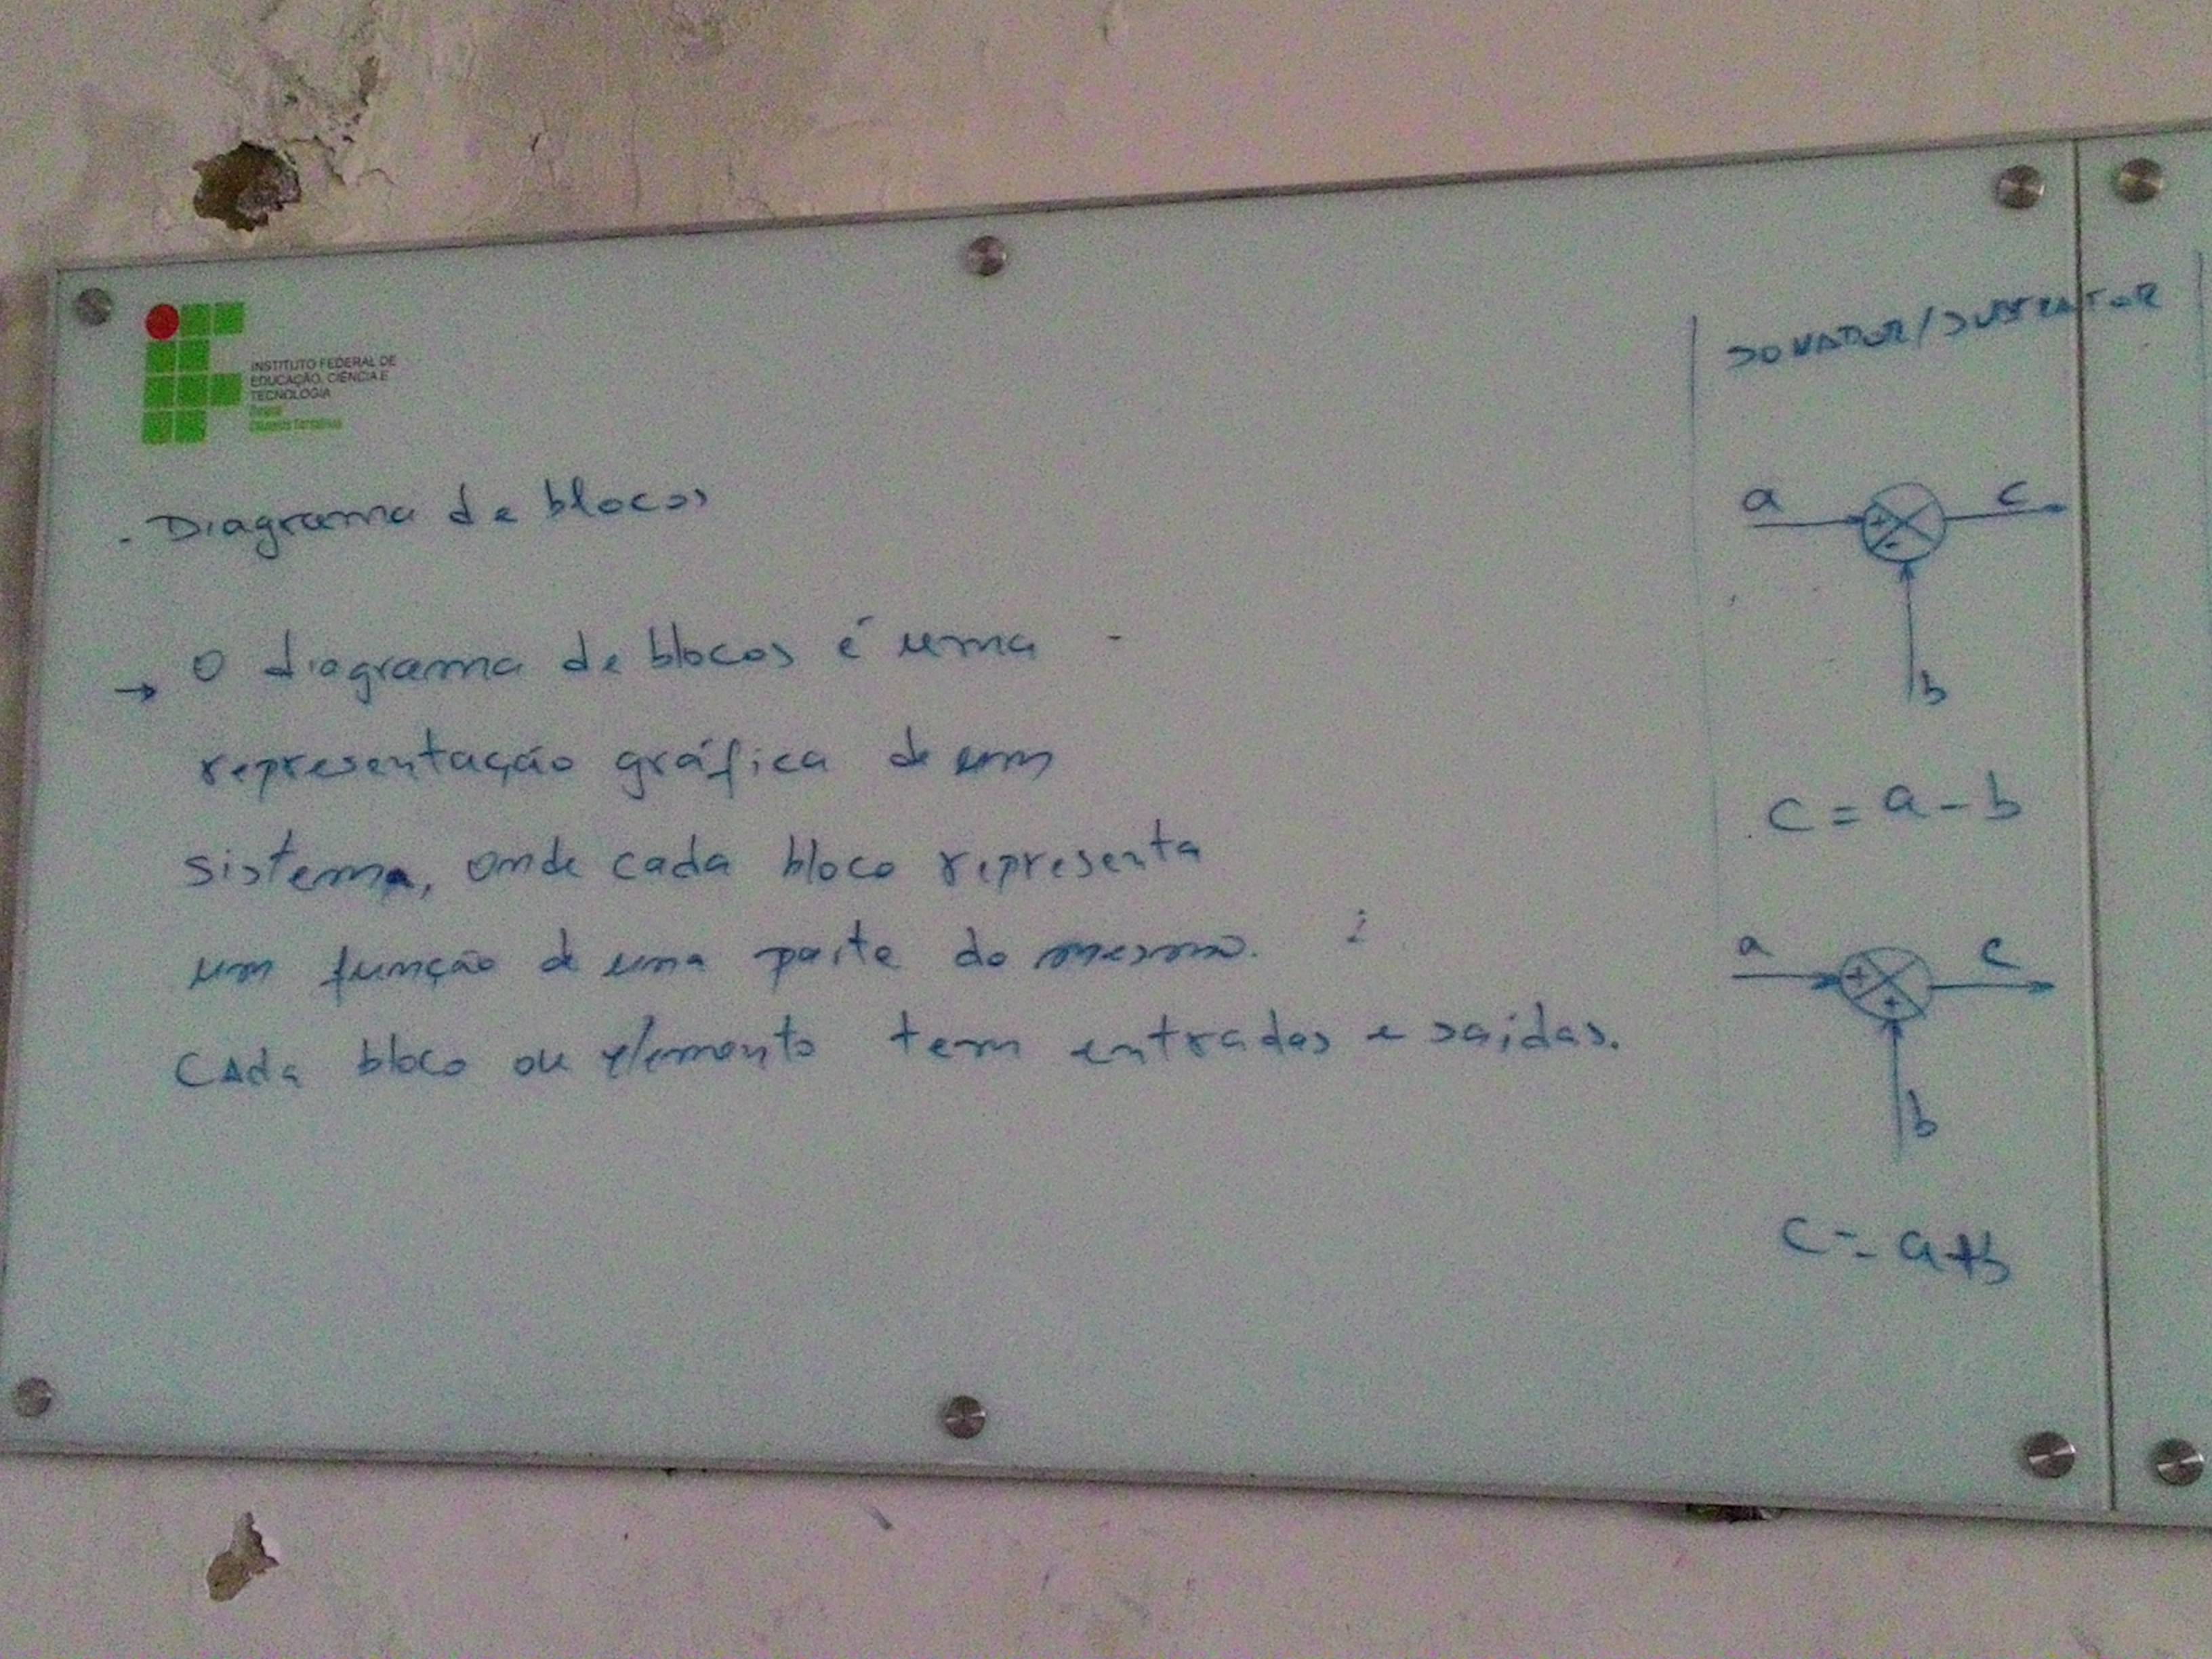 INSTITUTO FEDERAL DE
EDUCAÇÃO, CIÊNCIA E
TECNOLOGIA
Paraná
. Diagrama de blocos
→ O diagrama de blocos é uma
representação gráfica de um
sistema, onde cada bloco representa
um função de uma parte do mesmo.
CAda bloco ou elemento tem entradas e saídas.
SOMADOR/SUBTRATOR
a
+
-
c
b
c = a - b
a
+
+
c
b
c = a+b